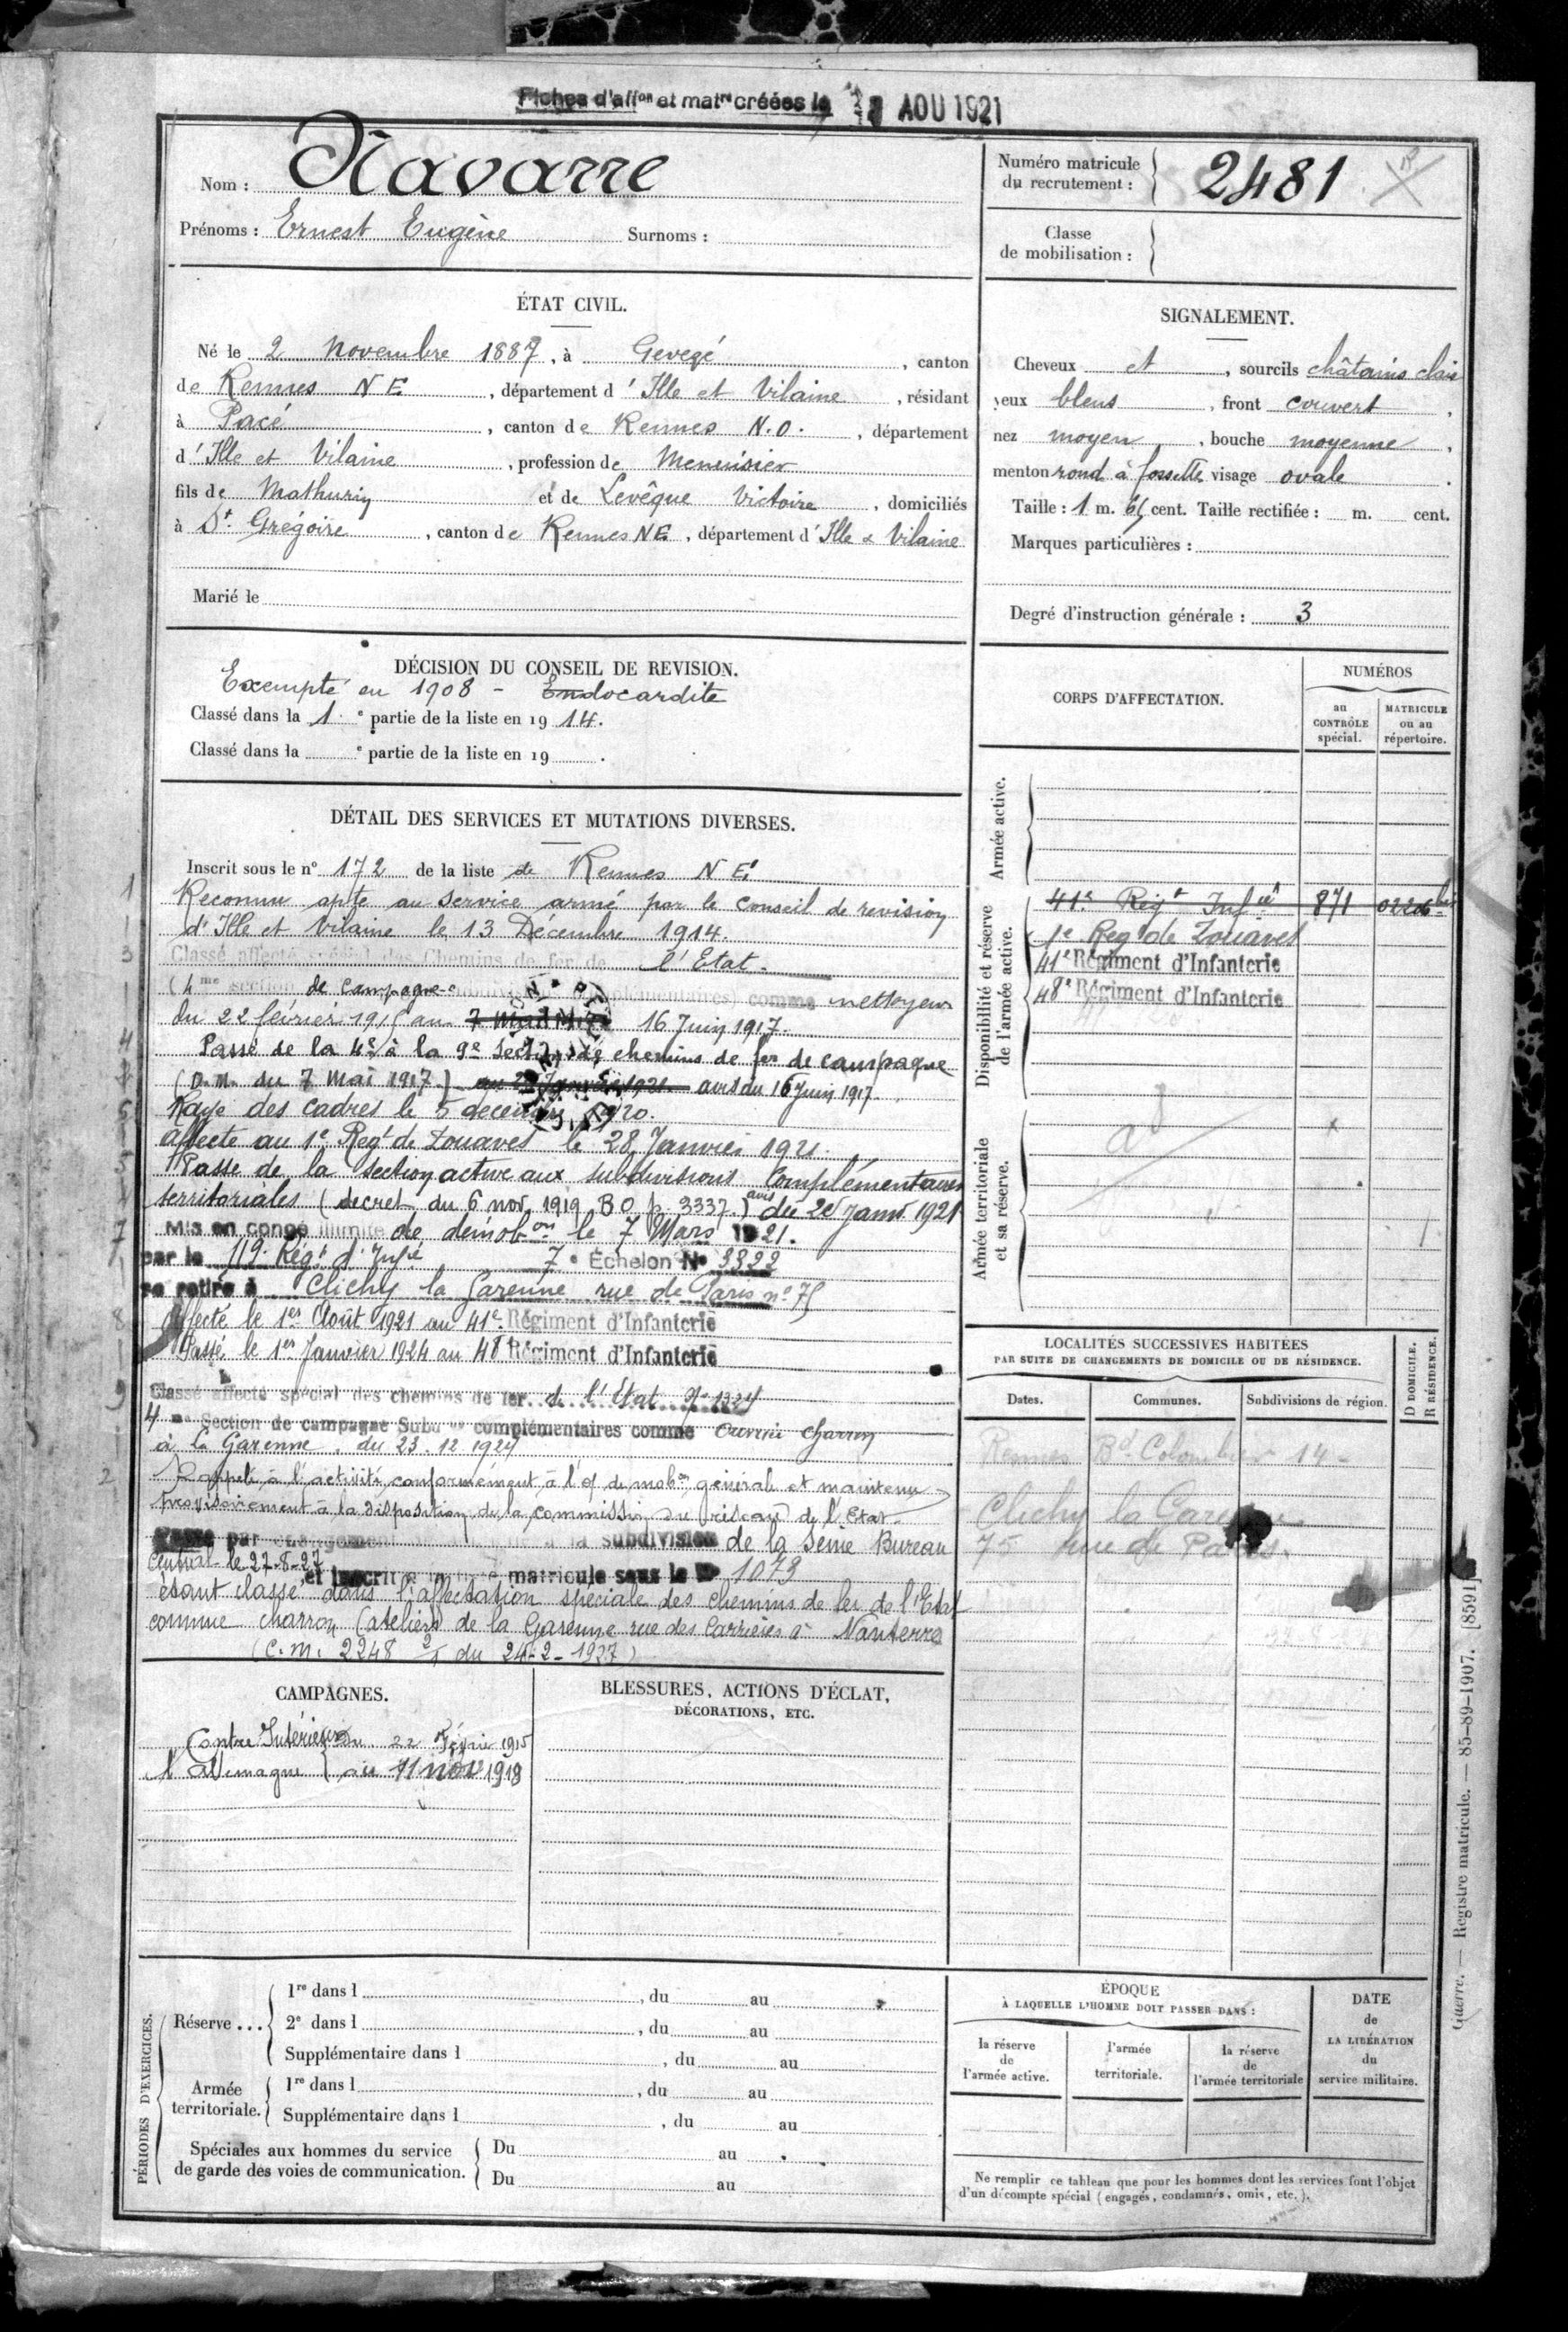 Fiches d'aff<sup>on</sup> et mat<sup>re</sup> créées le AOU 1921
Nom : Navarre
Prénoms : Ernest Eugène Surnoms :
Numéro matricule du recrutement : 2481
Classe de mobilisation :
ÉTAT CIVIL.
Né le 2 Novembre 1887, à Gevezé, canton
de Rennes N E, département d'Ille et Vilaine, résidant
à Pacé, canton de Rennes N.O., département
d'Ille et Vilaine, profession de Menuisier
fils de Mathurin et de Levêque Victoire, domiciliés
à St Grégoire, canton de Rennes NE, département d'Ille & Vilaine
Marié le
SIGNALEMENT.
Cheveux et, sourcils châtains clairs
yeux bleus, front couvert,
nez moyen, bouche moyenne,
menton rond à fossette visage ovale.
Taille : 1 m. cent. Taille rectifiée : m. cent.
Marques particulières :
Degré d'instruction générale : 3
DÉCISION DU CONSEIL DE REVISION.
Exempté en 1908 - Endocardite
Classé dans la 1e partie de la liste en 1914.
Classé dans la e partie de la liste en 19 .
DÉTAIL DES SERVICES ET MUTATIONS DIVERSES.
Inscrit sous le n° 172 de la liste de Rennes N E.
Reconnu apte au service armé par le Conseil de revision
d'Ille et Vilaine le 13 Décembre 1914.
Classé affecté spécial des Chemins de fer de l'Etat.
(4me section de campagne subdivisions complémentaires) comme nettoyeur
du 22 février 1915 au 16 Juin 1917.
Passé de la 4e à la 9e Section de chemins de fer de campagne
(D.M. du 7 Mai 1917) avis du 16 Juin 1917
Rayé des cadres le 5 décembre 1920.
affecté au 1e Regt de Zouaves le 28 Janvier 1921.
Passé de la Section active aux subdivisions Complémentaires
territoriales (decret du 6 nov. 1919 B O p. 3337.) avis du 25 Janv 1921
Mis en congé illimité de démobon le 7 Mars 1921.
par le 119e Regt d'Infie 7e Échelon N° 3322
se retire à Clichy la Garenne rue de Paris n° 75
Affecté le 1er Août 1921 au 41e Régiment d'Infanterie
Passé le 1er Janvier 1924 au 48e Régiment d'Infanterie
Classé affecté spécial des chemins de fer de l'Etat
4me Section de campagne Subdons complémentaires comme Ouvrier Charron
à La Garenne. du 23.12 1924
Rappelé à l'activité conformément à l'o/ de mobon générale et maintenu
provisoirement à la disposition de la commission du réseau de l'Etat.
Passé par changement à la subdivision de la Seine Bureau
Central le 27-8-27 et inscrit matricule sous le N° 1073
étant classé dans l'affectation spéciale des chemins de fer de l'Etat
comme charron (ateliers de la Garenne rue des Carrières à Nanterre
(C.M. 2248 2/1 du 24-2-1927)
CORPS D'AFFECTATION.
NUMÉROS
au CONTRÔLE spécial.
MATRICULE ou au répertoire.
Armée active.
Disponibilité et réserve de l'armée active.
41e Regt Infie 871
1e Regt de Zouaves
41e Régiment d'Infanterie
48e Régiment d'Infanterie
Armée territoriale et sa réserve.
LOCALITÉS SUCCESSIVES HABITÉES
PAR SUITE DE CHANGEMENTS DE DOMICILE OU DE RÉSIDENCE.
Dates. Communes. Subdivisions de région.
D DOMICILE.
R RÉSIDENCE.
Rennes Bd Colombier 14
Clichy la Garenne
75 rue de Paris.
CAMPAGNES.
Contre l'Allemagne { Intérieur du 22 Février 1915
au 11 nov 1918
BLESSURES, ACTIONS D'ÉCLAT,
DÉCORATIONS, ETC.
PÉRIODES D'EXERCICES.
Réserve...
1re dans l , du au
2e dans l , du au
Supplémentaire dans l , du au
Armée territoriale.
1re dans l , du au
Supplémentaire dans l , du au
Spéciales aux hommes du service
de garde des voies de communication.
Du au
Du au
ÉPOQUE
À LAQUELLE L'HOMME DOIT PASSER DANS :
la réserve de l'armée active.
l'armée territoriale.
la réserve de l'armée territoriale
DATE de LA LIBÉRATION du service militaire.
Ne remplir ce tableau que pour les hommes dont les services font l'objet
d'un décompte spécial (engagés, condamnés, omis, etc.).
Guerre. — Registre matricule. — 85-89-1907. [8591]